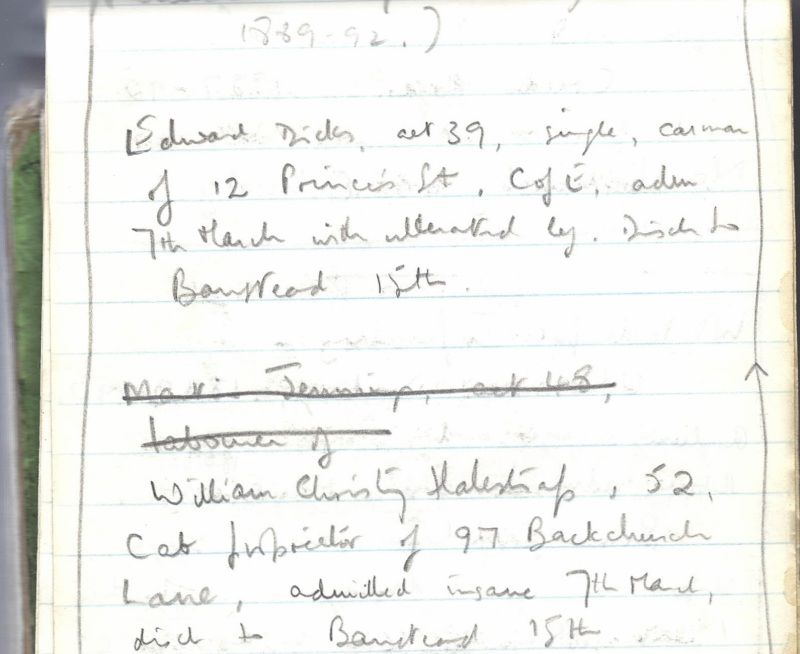 1889-92.)
[Edward Dicks, aet 39, single, carman
of 12 Princes St, C of E, adm
7th March with ulcerated leg. Disch to
Banstead 15th.
Jennings, aet 48,
labourer of
William Christy, 52,
Cab proprietor of 97 Backchurch
Lane, admitted insane 7th March,
disch to Banstead 15th